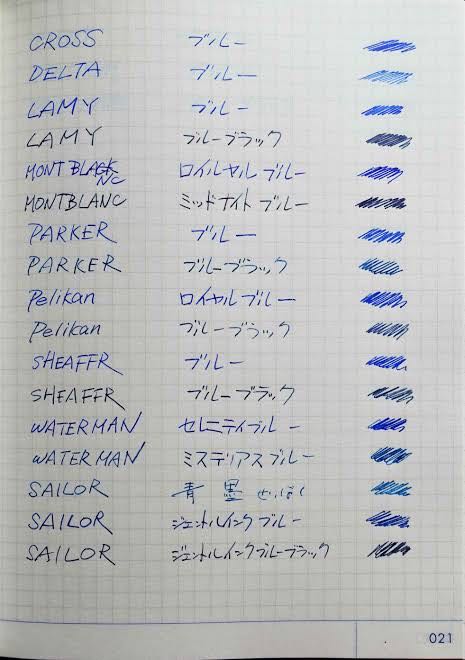 CROSS ブルー
DELTA ブルー
LAMY ブルー
LAMY ブルーブラック
MONTBLACK NC ロイルヤルブルー
MONTBLANC ミッドナイトブルー
PARKER ブルー
PARKER ブルーブラック
Pelikan ロイヤルブルー
Pelikan ブルーブラック
SHEAFFR ブルー
SHEAFFR ブルーブラック
WATERMAN セレニティブルー
WATERMAN ミステリアスブルー
SAILOR 青墨 せいぼく
SAILOR ジェントルインクブルー
SAILOR ジェントルインクブルーブラック
021